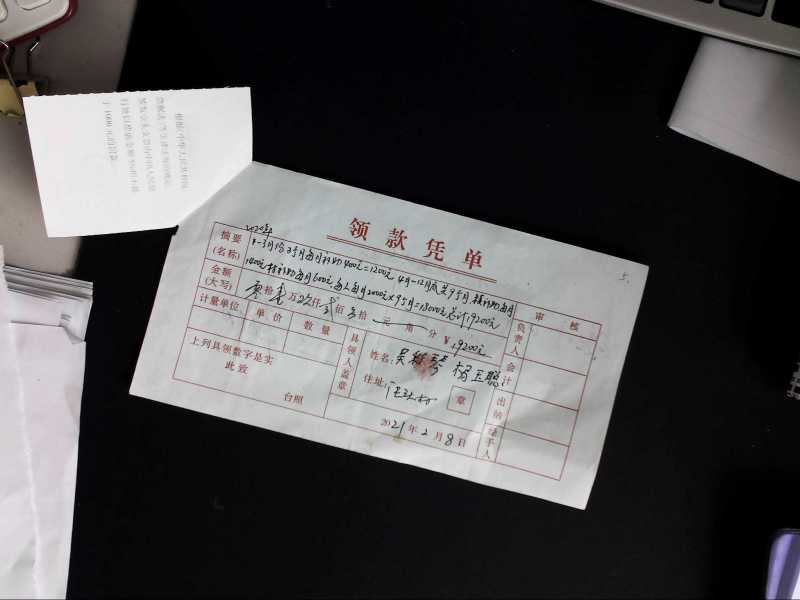 领款凭单
5.
2020年
摘要
(名称)
1-3月份3个月每月补助400元=1200元 4月-12月底共9个月,镇补助每月
1400元村补助每月600元,每人每月2000元×9个月=18000元总计19200元
金额
(大写)
零拾壹万玖仟贰佰零拾 元 角 分 ¥ 19200元
计量单位
单价
数量
上列具领数字是实
此致
台照
具领人盖章
姓名:
杨玉聪
住址:
章
2021年2月8日
审核
负责人
会计
出纳
经手人
根据《中华人民共和国
于1000元的罚款